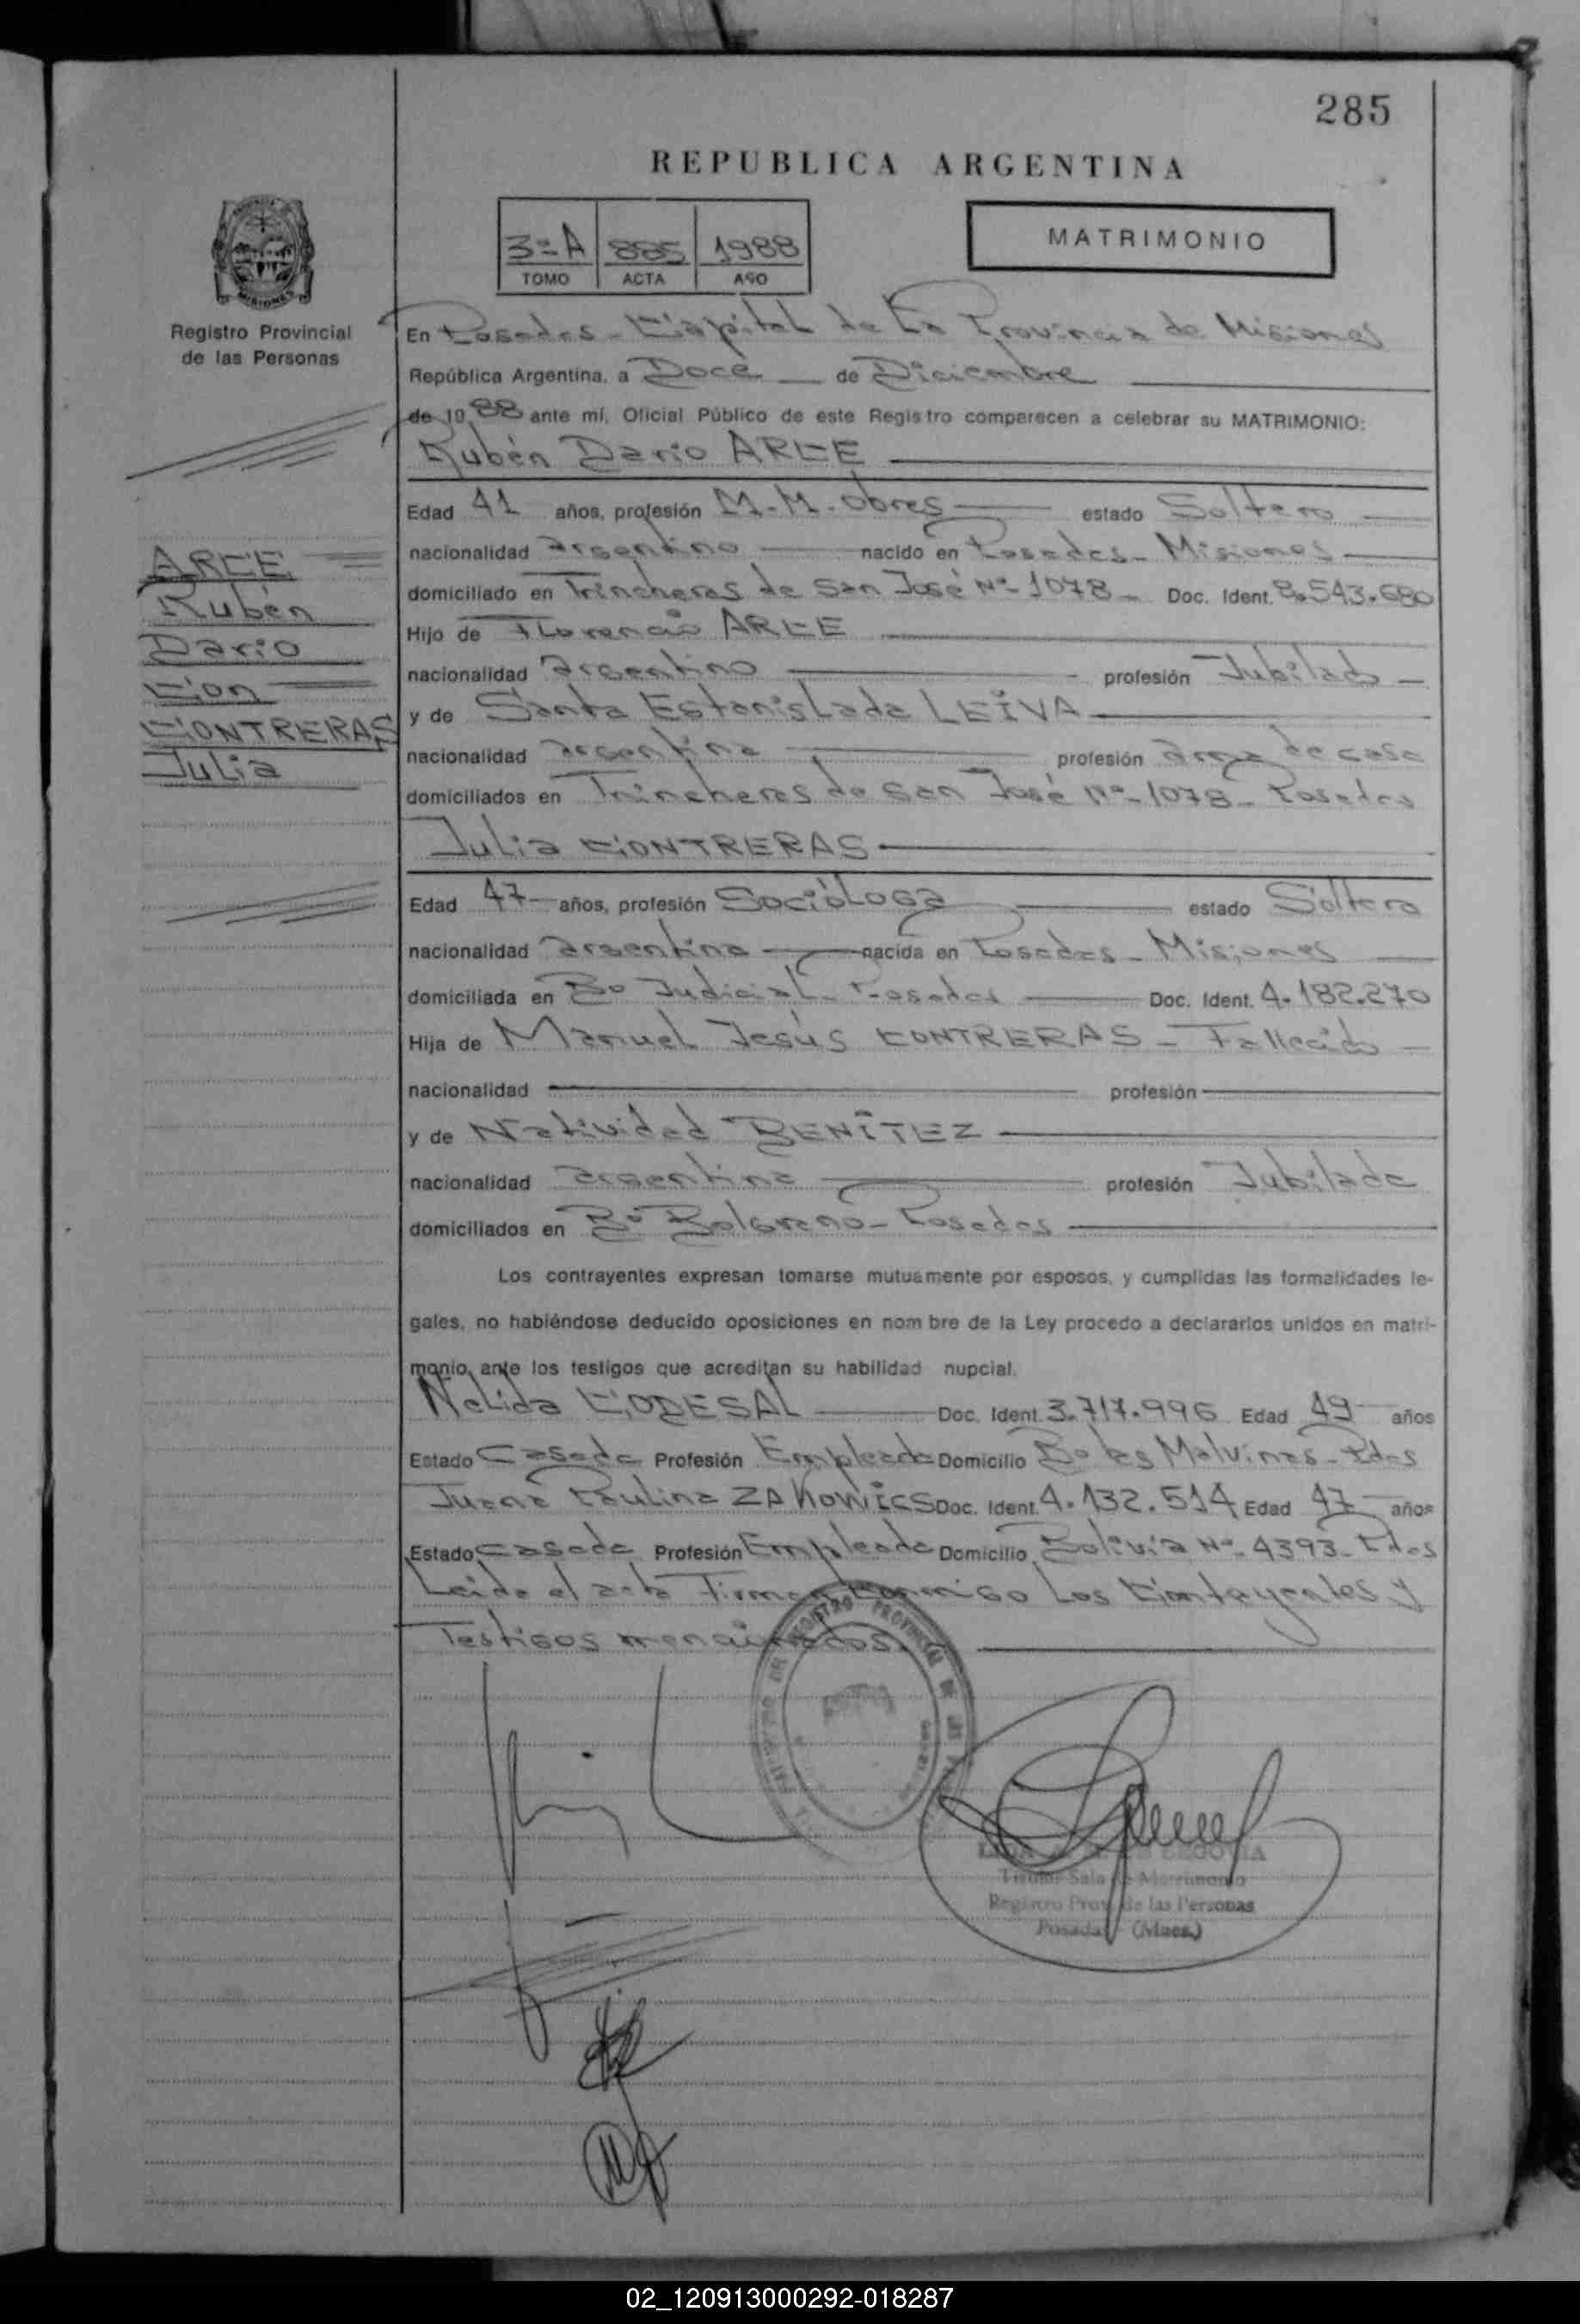 285
REPUBLICA ARGENTINA
3º A 885 1988
TOMO ACTA AÑO
MATRIMONIO
PROVINCIA
MISIONES
Registro Provincial
de las Personas
En Posadas - Capital de La Provincia de Misiones
República Argentina, a Doce de Diciembre
de 1988 ante mí, Oficial Público de este Registro comparecen a celebrar su MATRIMONIO:
Rubén Dario ARCE
Edad 41 años, profesión M.M. Obras estado Soltero
nacionalidad argentino nacido en Posadas - Misiones
domiciliado en Trincheras de San José Nº 1078 - Doc. Ident. 8.543.680
Hijo de Florencio ARCE
nacionalidad argentino profesión Jubilado
y de Santa Estanislada LEIVA
nacionalidad argentina profesión ama de casa
domiciliados en Trincheras de San José Nº 1078 - Posadas
ARCE
Rubén
Dario
Con
CONTRERAS
Julia
Julia CONTRERAS
Edad 47 años, profesión Socióloga estado Soltera
nacionalidad argentina nacida en Posadas - Misiones
domiciliada en Bº Judicial - Posadas Doc. Ident. 4.182.270
Hija de Manuel Jesús CONTRERAS - Fallecido
nacionalidad profesión
y de Natividad BENÍTEZ
nacionalidad argentina profesión Jubilada
domiciliados en Bº - Posadas
Los contrayentes expresan tomarse mutuamente por esposos, y cumplidas las formalidades le-
gales, no habiéndose deducido oposiciones en nombre de la Ley procedo a declararlos unidos en matri-
monio, ante los testigos que acreditan su habilidad nupcial.
Nelida CODESAL Doc. Ident. 3.717.996 Edad 49 años
Estado Casada Profesión Empleada Domicilio Bº Las Malvinas - Pdas
Juana Paulina ZAKOWICS Doc. Ident. 4.132.514 Edad 47 años
Estado Casada Profesión Empleada Domicilio Bolivia Nº 4393 - Pdas
Leida el acta Firman conmigo Los Contayentes y
Testigos mencionados.
REGISTRO PROVINCIAL DE LAS
SEGOVIA
Titular Sala de Matrimonio
Registro Prov. de las Personas
Posadas (Mnes.)
02_120913000292-018287